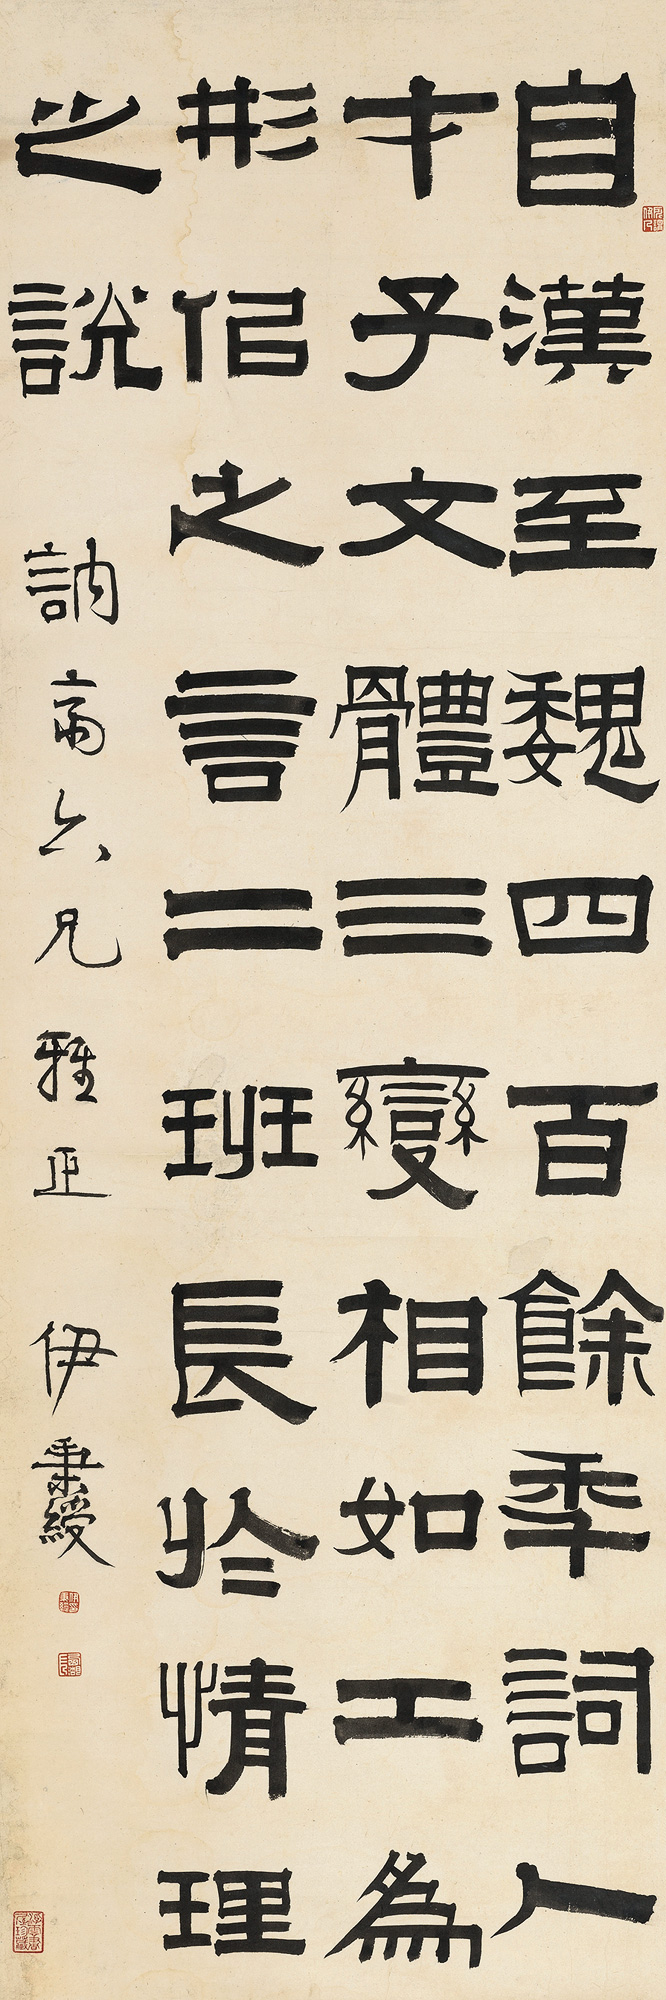 自漢至魏四百餘秊詞人
才子文體三變相如工為
形佀之言二班長於情理
之說 訥齋六兄雅正 伊秉綬